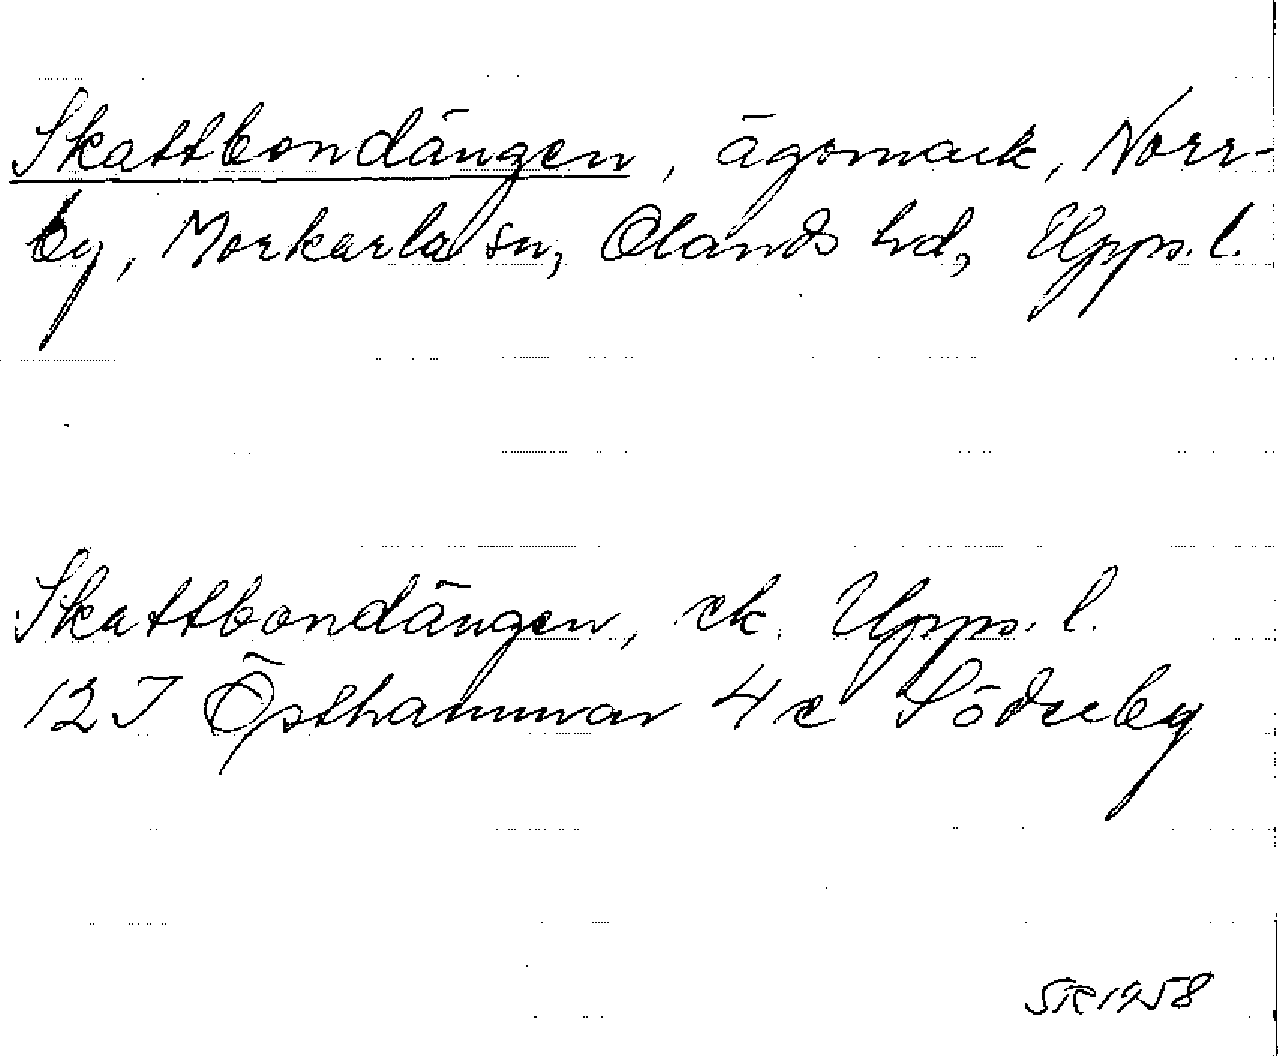 Skattbondängen, ägomark, Norr-
by, Morkarla sn, Olands hd, Upps. l.
Skattbondängen, ek. Upps. l.
12 I Östhammar 4 c Söderby
SR 1958